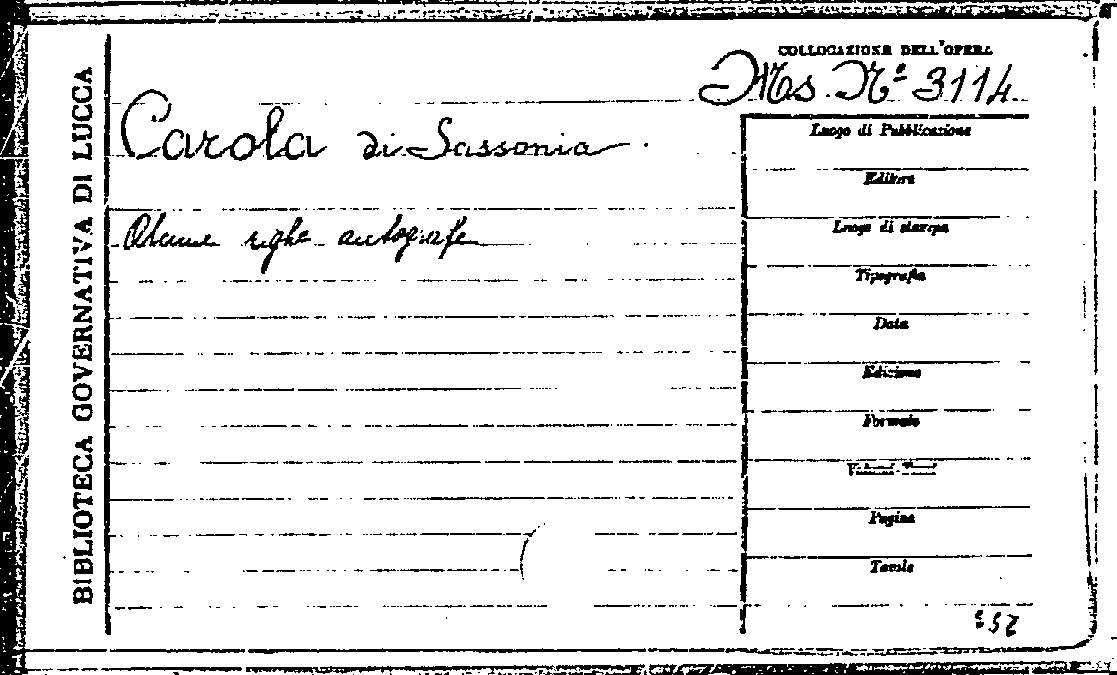 BIBLIOTECA GOVERNATIVA DI LUCCA
COLLOCAZIONE DELL'OPERA
Ms. Nº 3114
Carola di Sassonia
Alcune righe autografe
Luogo di Pubblicazione
Editore
Luogo di stampa
Tipografia
Data
Edizione
Formato
Pagine
Tavole